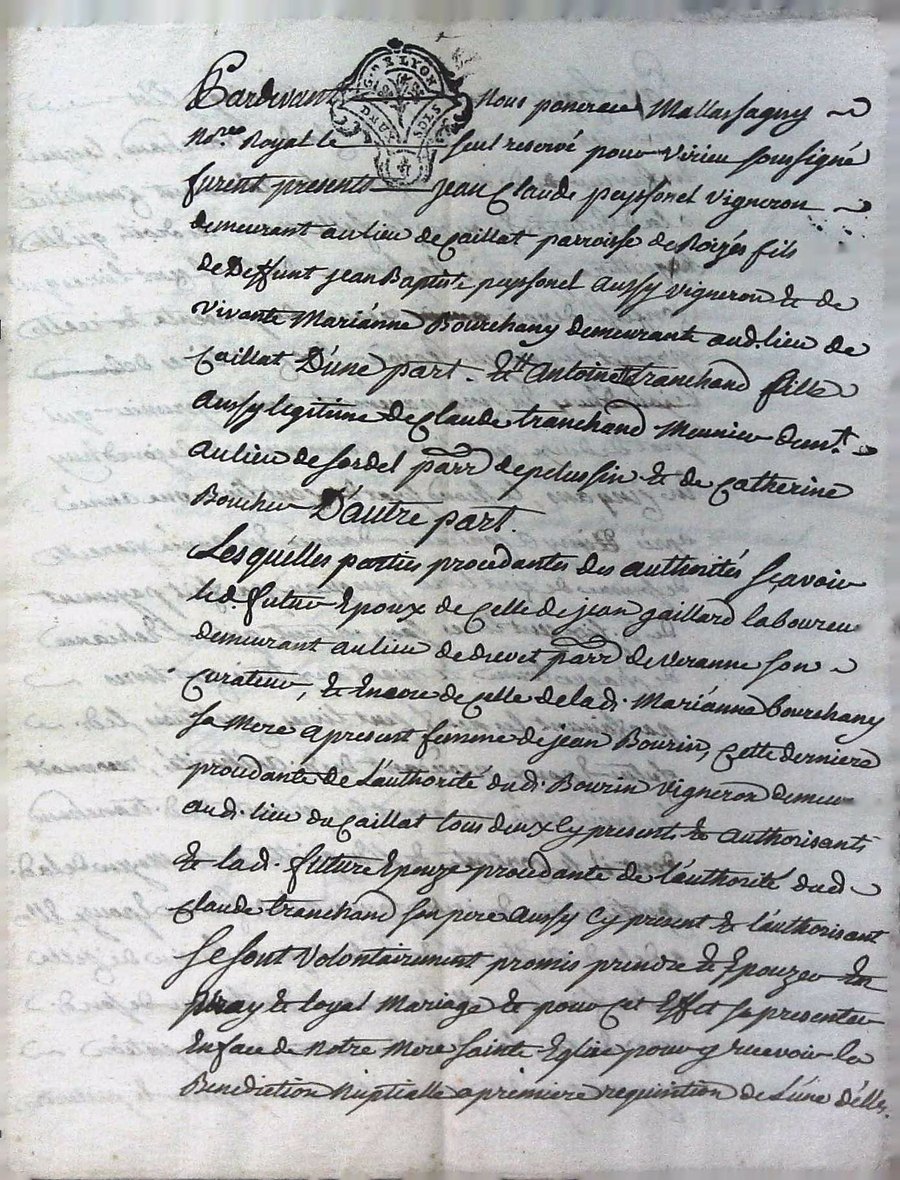 G. DE LYON
DEUX SOLS
Pardevant Nous pancrace Mallassagny
No.re Royal le seul reservé pour virieu soussigné
furent presents jean Claude peyssonel vigneron
demeurant au lieu de caillat parroisse de Roizés fils
de Deffunt jean Baptiste peyssonel aussy vigneron & de
vivante Mariánne Bourchany demeurant aud. lieu de
Caillat D'úne part. Ett Antoinette tranchand fille
aussy legitime de claude tranchand Meunier demt.
au lieu de sordel parr de pelussin & de Catherine
Boucher D'aútre part.
Lesquélles parties procedantes des authorités sçavoir
led. futur Epoux de Celle de jean gaillard laboureu
demeurant au lieu de drevet parr de veranne son
Curateur, & Encore de Celle de lad. Mariánne bourchany
sa Mere apresent femme de jean Bourin, Cette derniere
procedante de L'authorité dud. Bourin vigneron demeu
aud. lieu du Caillat tous deux Cy presents & authorisants
& lad. future Epouze procedante de l'authorité dud
Claude tranchand son pere aussy Cy present & l'authorisant
se sont volontairement promis prendre & Epouzer En
vray & loyal Mariage & pour Cet Effet se presenter
En face de Notre Mere sainte Eglise pour y recevoir la
Benediction Nuptialle a premiere requisition de L'úne d'élles.